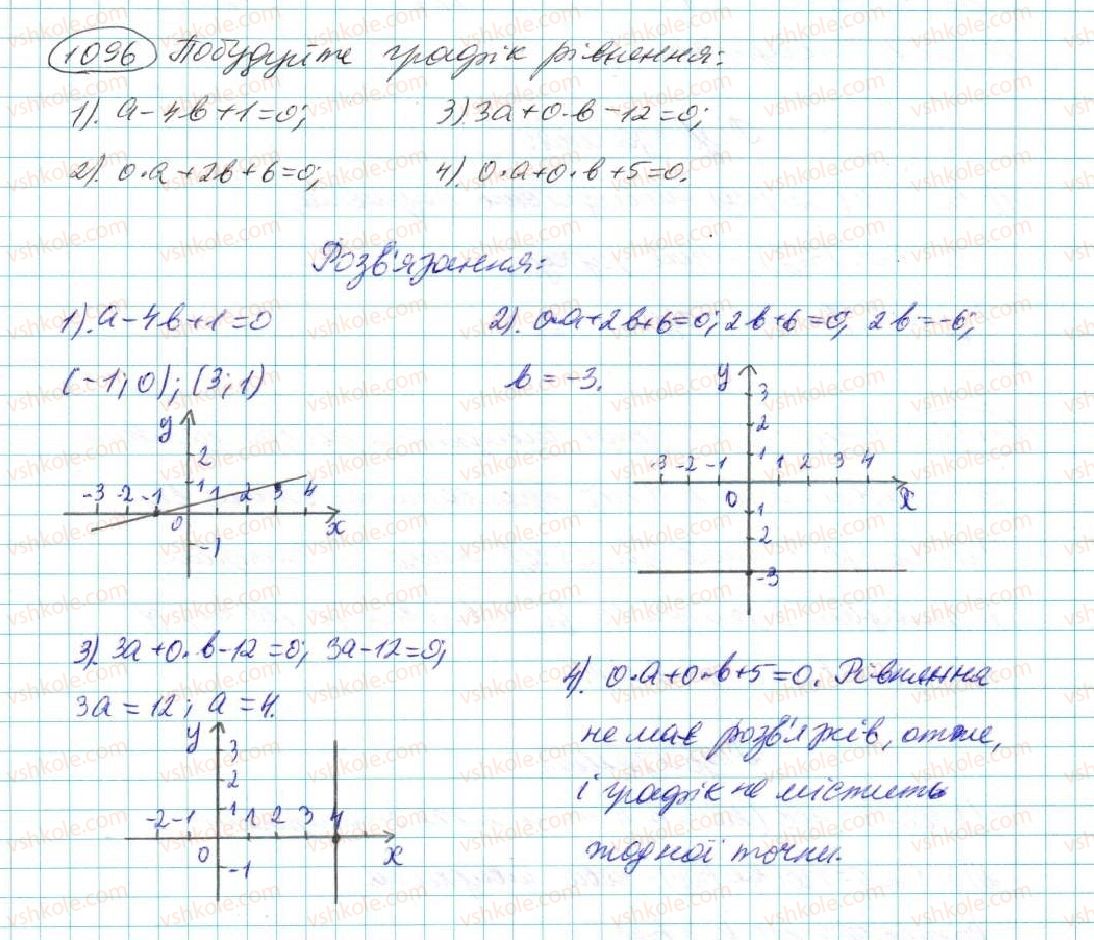 1096 Побудуйте графік рівняння:
1). a-4b+1=0; 3). 3a+0·b-12=0;
2). 0·a+2b+6=0; 4). 0·a+0·b+5=0.
Розв'язання:
1). a-4b+1=0
(-1; 0); (3; 1)
y
2
-3 -2 -1 1 1 2 3 4
0 x
-1
2). 0·a+2b+6=0; 2b+6=0; 2b=-6;
b=-3.
y
3
2
1
-3 -2 -1 1 2 3 4
0 x
1
2
-3
3). 3a+0·b-12=0; 3a-12=0;
3a=12; a=4.
y
3
2
1
-2 -1 1 2 3 4
0 x
-1
4). 0·a+0·b+5=0. Рівняння
не має розв'язків, отже,
і графік не містить
жодної точки.
vshkole.com